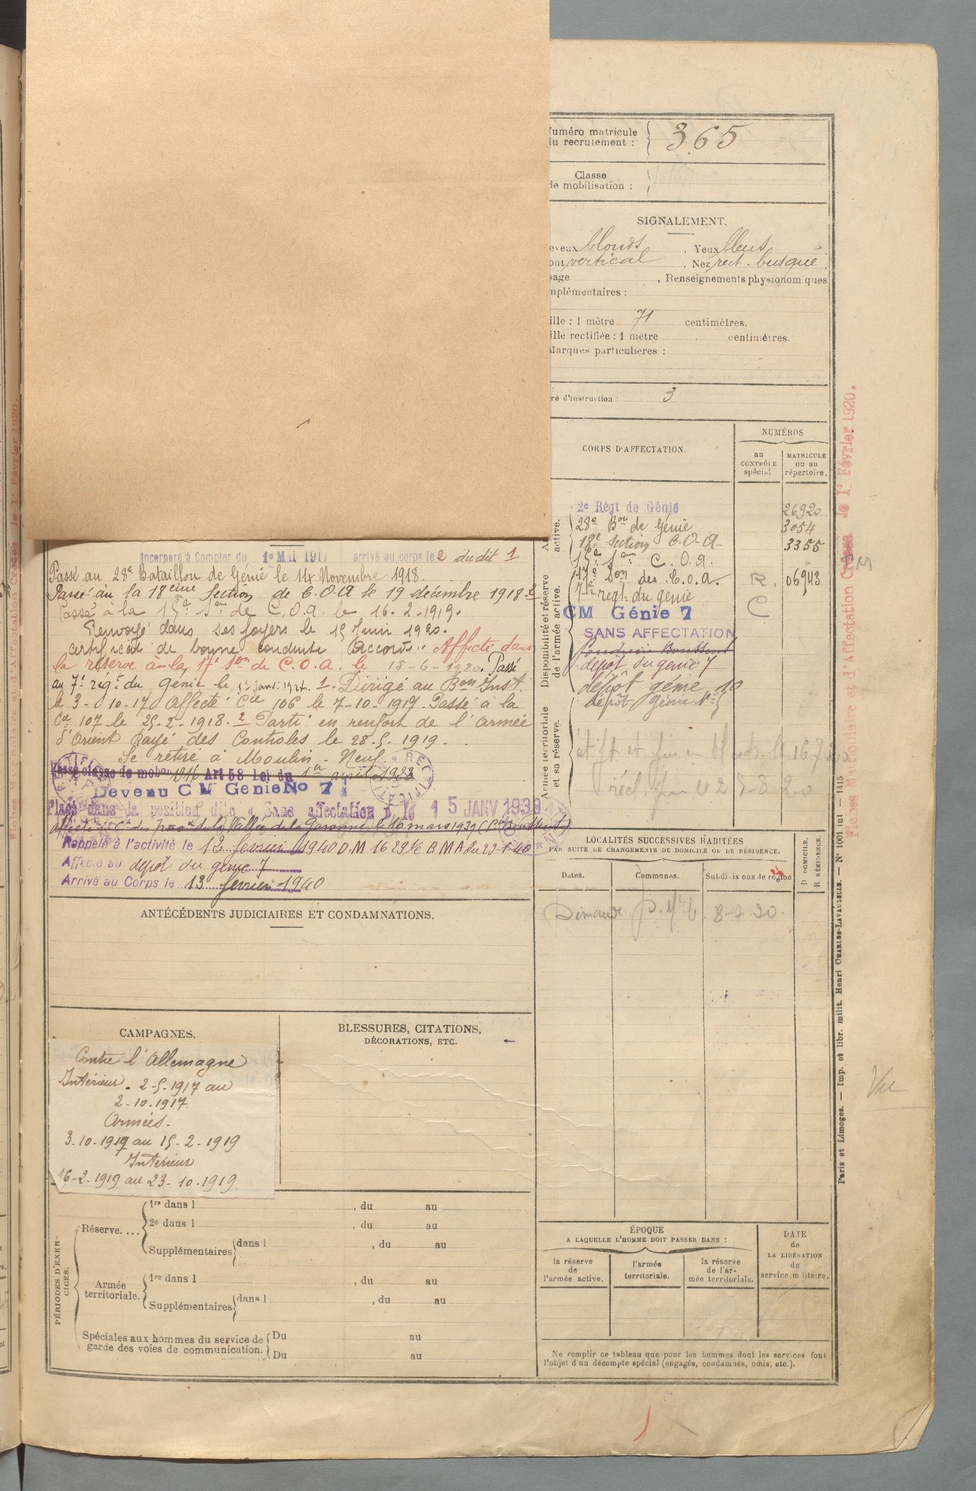 Numéro matricule du recrutement : 365
Classe de mobilisation :
SIGNALEMENT.
eveux blonds . Yeux bleus
ont vertical . Nez rect. busqué
sage , Renseignements physionomiques
mplémentaires :
ille : 1 mètre 71 centimètres.
ille rectifiée : 1 mètre centimètres.
Marques particulières :
ré d'instruction : 3
CORPS D'AFFECTATION.
NUMÉROS
au CONTRÔLE spécial
MATRICULE ou au répertoire.
active.
2e Régt de Génie 26920
28e Bon de Génie 3054
18e Section C.O.A. 3355
15e Son C.O.A.
Disponibilité et réserve de l'armée active.
17e Son des C.O.A. R. 06948
7e rég. du génie C
CM Génie 7
SANS AFFECTATION
dépôt du génie 7
dépôt génie
dépôt génie
Armée territoriale et sa réserve.
Incorporé à Compter du 1e Mai 1917 arrivé au corps le 2 dudit 1
Passé au 28e Bataillon de Génie le 14 Novembre 1918.
Passé au la 18ème Section de C.O.A le 19 décembre 1918
Passé à la 15e Son de C.O.A. le 16.2.1919.
Renvoyé dans ses foyers le 15 Juin 1920.
Certificat de bonne conduite Accordé. Affecté dans
la réserve à la 17e Son de C.O.A. le 15-6-1920. Passé
au 7e régt du génie le 1. Dirigé au Bon Inst.
le 3-10-17 Affecté Cie 106 le 7-10-1917 Passé à la
Cie 107 le 25-2-1918. 2 Parti en renfort de l'armée
d'Orient Rayé des Controles le 28-5-1919.
Se retire à Moulin-Neuf
Passé classe de mob Art 58 loi du
Devenu CM Génie No 7
Placé dans la position dite « Sans affectation » le 15 JANV 1938
Affecté Cie des de la Vallée de la Garonne le 10 mars 1939
Rappelé à l'activité le 13 février 1940 D.M. B.M.A
Affecté au dépôt du génie 7
Arrivé au Corps le 13 février 1940
LOCALITÉS SUCCESSIVES HABITÉES
PAR SUITE DE CHANGEMENTS DE DOMICILE OU DE RÉSIDENCE.
Dates. Communes. Subdivisions de région D DOMICILE, R RÉSIDENCE
ANTÉCÉDENTS JUDICIAIRES ET CONDAMNATIONS.
CAMPAGNES.
Contre l'Allemagne
Intérieur. 2-5-1917 au
2-10-1917
Armées.
3-10-1917 au 15-2-1919
Intérieur
16-2-1919 au 23-10-1919
BLESSURES, CITATIONS,
DÉCORATIONS, ETC.
PÉRIODES D'EXERCICES.
Réserve.... 1re dans l , du au
2e dans l , du au
Supplémentaires dans l , du au
Armée territoriale. 1re dans l , du au
Supplémentaires dans l , du au
Spéciales aux hommes du service de garde des voies de communication. Du au
Du au
ÉPOQUE
A LAQUELLE L'HOMME DOIT PASSER DANS :
la réserve de l'armée active.
l'armée territoriale.
la réserve de l'armée territoriale.
DATE de LA LIBÉRATION du service militaire.
Ne remplir ce tableau que pour les hommes dont les services font
l'objet d'un décompte spécial (engagés, condamnés, omis, etc.).
Paris et Limoges. — Imp. et libr. milit. Henri CHARLES-LAVAUZELLE. — No 1001 mi — 1415